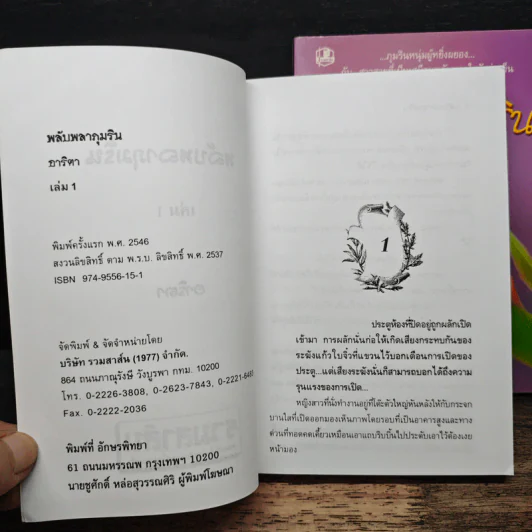 พลับพลาภุมริน
อาริตา
เล่ม 1
พิมพ์ครั้งแรก พ.ศ. 2546
สงวนลิขสิทธิ์ ตาม พ.ร.บ. ลิขสิทธิ์ พ.ศ. 2537
ISBN 974-9556-15-1
จัดพิมพ์ & จัดจำหน่ายโดย
บริษัท รวมสาส์น (1977) จำกัด.
864 ถนนภาณุรังษี วังบูรพา กทม. 10200
โทร. 0-2226-3808, 0-2623-7843, 0-2221-6483
Fax. 0-2222-2036
พิมพ์ที่ อักษรพิทยา
61 ถนนมหรรณพ กรุงเทพฯ 10200
นายชูศักดิ์ หล่อสุวรรณศิริ ผู้พิมพ์โฆษณา
...ภุมรินหนุ่มผู้หยิ่งผยอง...
1
ประตูห้องที่ปิดอยู่ถูกผลักเปิด
เข้ามา การผลักนั่นก่อให้เกิดเสียงกระทบกันของ
ระฆังแก้วใบจิ๋วที่แขวนไว้บอกเตือนการเปิดของ
ประตู...แต่เสียงระฆังนั่นก็สามารถบอกได้ถึงความ
รุนแรงของการเปิด...
หญิงสาวที่นั่งทำงานอยู่ที่โต๊ะตัวใหญ่หันหลังให้กับกระจก
บานใสที่เปิดออกมองเห็นภาพโดยรอบที่เป็นอาคารสูงและทาง
ด่วนที่ทอดคดเคี้ยวเหมือนเอาแถบริบบิ้นไปประดับเอาไว้ต้องเงย
หน้ามอง